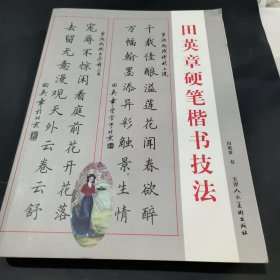 田英章硬笔楷书技法
田英章 书
天津人民美术出版社
千载佳酿溢莲花闻春欲醉
万幅翰墨添异彩触景生情
宠辱不惊闲看庭前花开花落
去留无意漫观天外云卷云舒
田英章书於北京